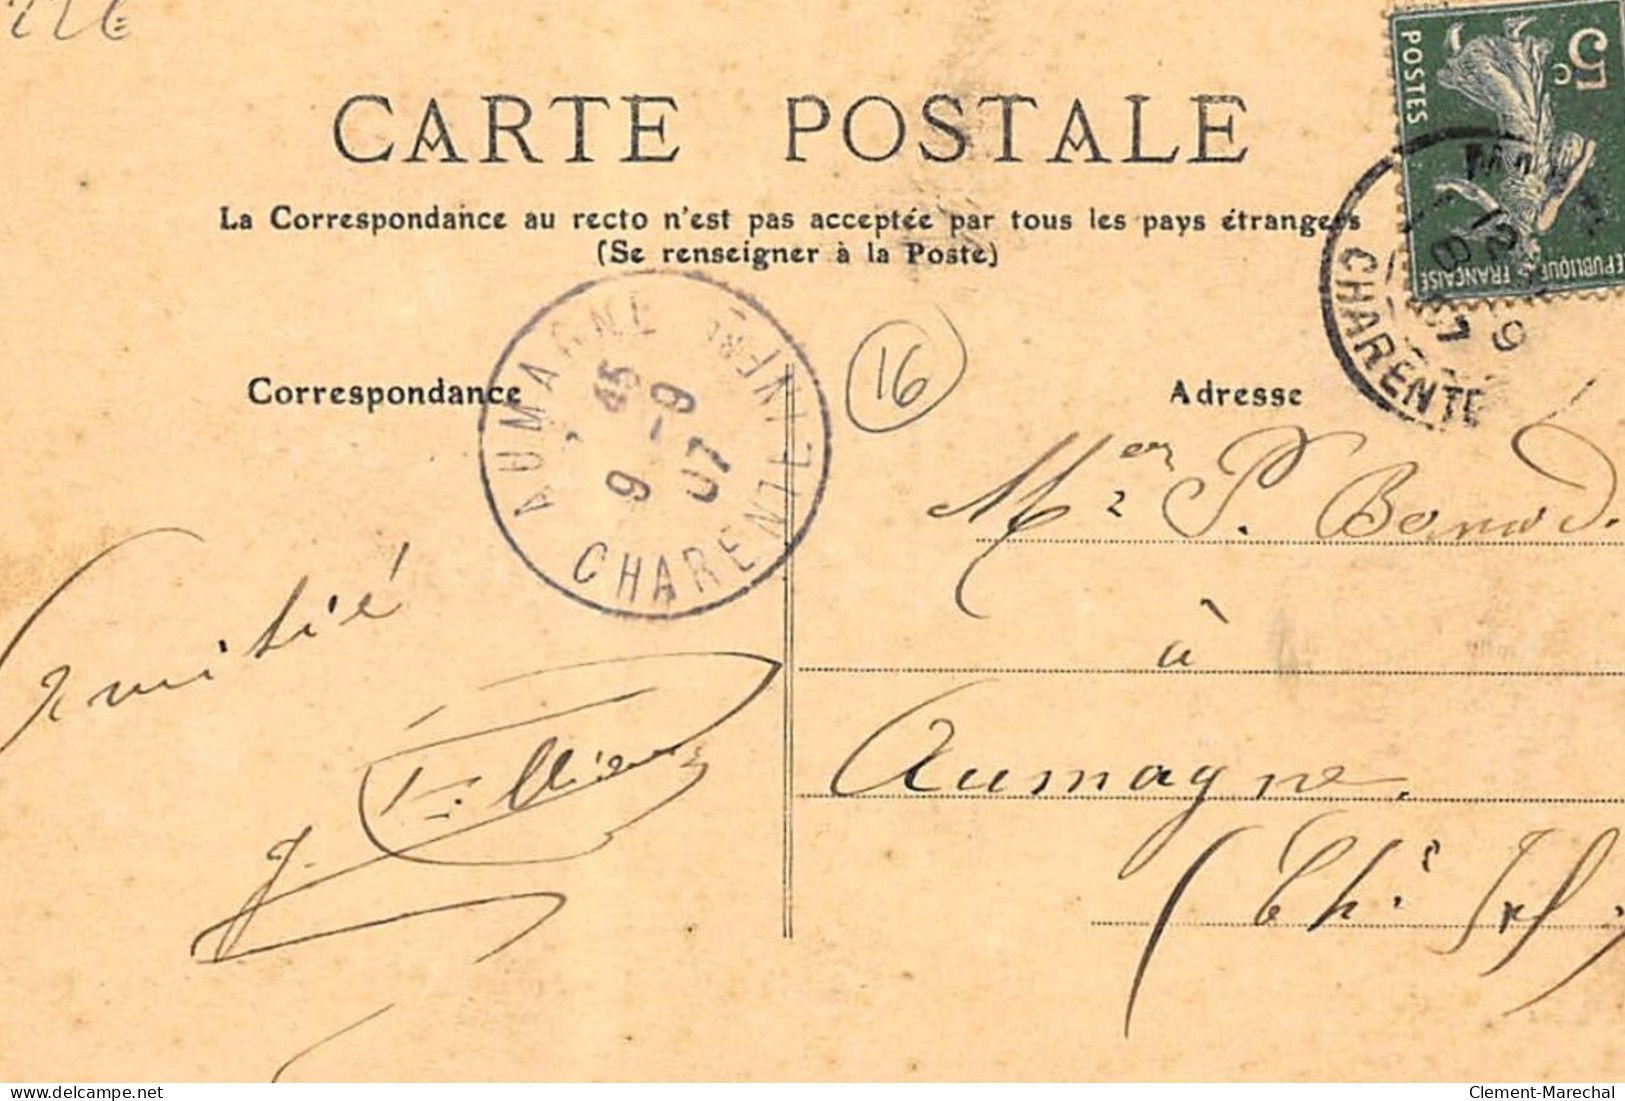 22E
CARTE POSTALE
La Correspondance au recto n'est pas acceptée par tous les pays étrangers
(Se renseigner à la Poste)
5c
POSTES
REPUBLIQUE FRANÇAISE
12
8 9
07
CHARENTE
AUMAGNE
CHARENTE INFRE
9 45
9 -9
07
16
Correspondance
Adresse
P.
à
Aumagne.
(Ch. Inf.)
Amitié
J.
delcampe.net
Clement-Marechal